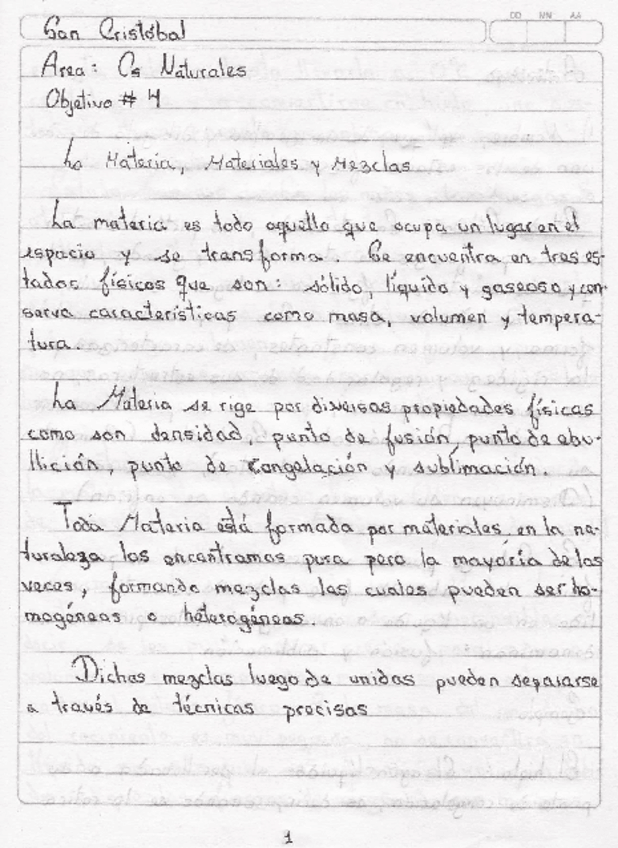 DD MM AA
San Cristóbal
Area: Cs Naturales
Objetivo # 4
La Materia, Materiales y Mezclas
La materia es todo aquello que ocupa un lugar en el
espacio y se transforma. Se encuentra en tres es-
tados físicos que son: sólido, líquido y gaseoso y con-
serva características como masa, volumen y tempera-
tura.
La Materia se rige por diversas propiedades físicas
como son densidad, punto de fusión, punto de ebu-
llición, punto de congelación y sublimación.
Toda Materia está formada por materiales, en la na-
turaleza los encontramos pura pero la mayoría de las
veces, formando mezclas las cuales pueden ser ho-
mogéneas o heterogéneas.
Dichas mezclas luego de unidas pueden separarse
a través de técnicas precisas
1